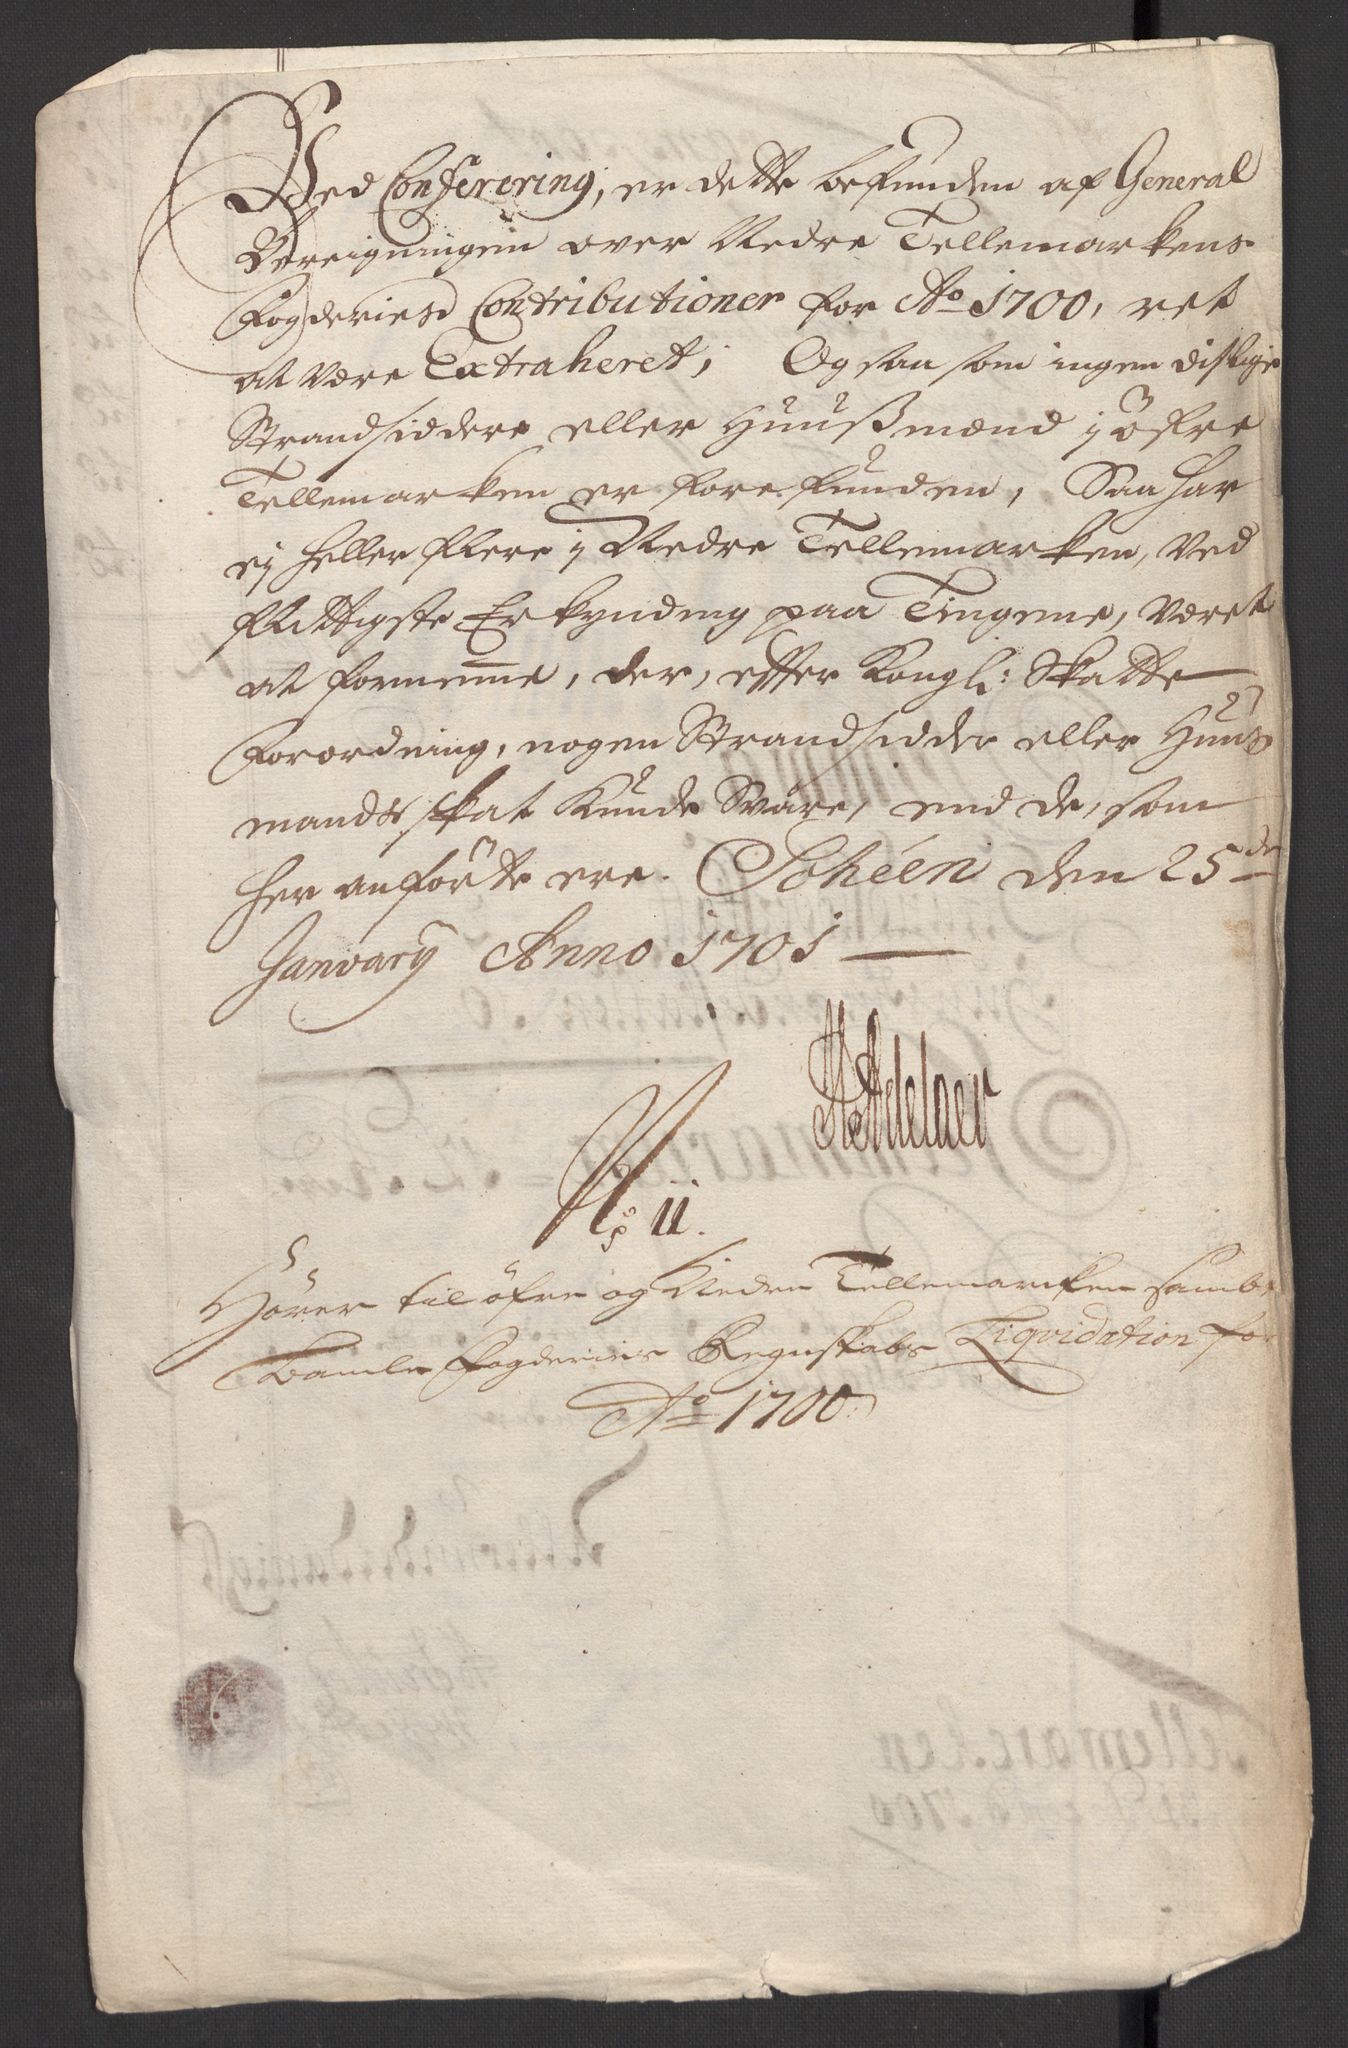 Ved Conferering, er dette befunden af General
Bereigningen over Nedre Tellemarkens
Fogderies Contributioner for Ao 1700, ret
at være Extraheret; Og saasom ingen dislige
Strandsiddere eller Huusmænd i öfre
Tellemarken er forefunden, Saa har
ej heller flere i Nedre Tellemarken, Ved
flittigste Erkynding paa Tingene, Været
at fornemme, der, efter Kongl: Skatte
forordning, nogen Strandsidder eller Huus
mands skat kunde Svare, end de, som
her anförte ere. Scheen den 25de
Janvarÿ Anno 1701
H Adelaer
No: 11.
Hörer til öfre og Nedre Tellemarcken sambt
Bamle Fogderies Regnskabs Liqvidation for
Ao 1700